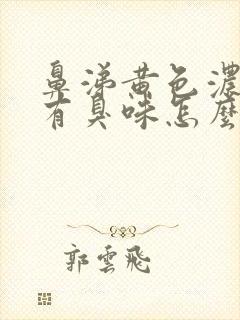 鼻涕黄色濃
有臭味怎麽
郭雲飛